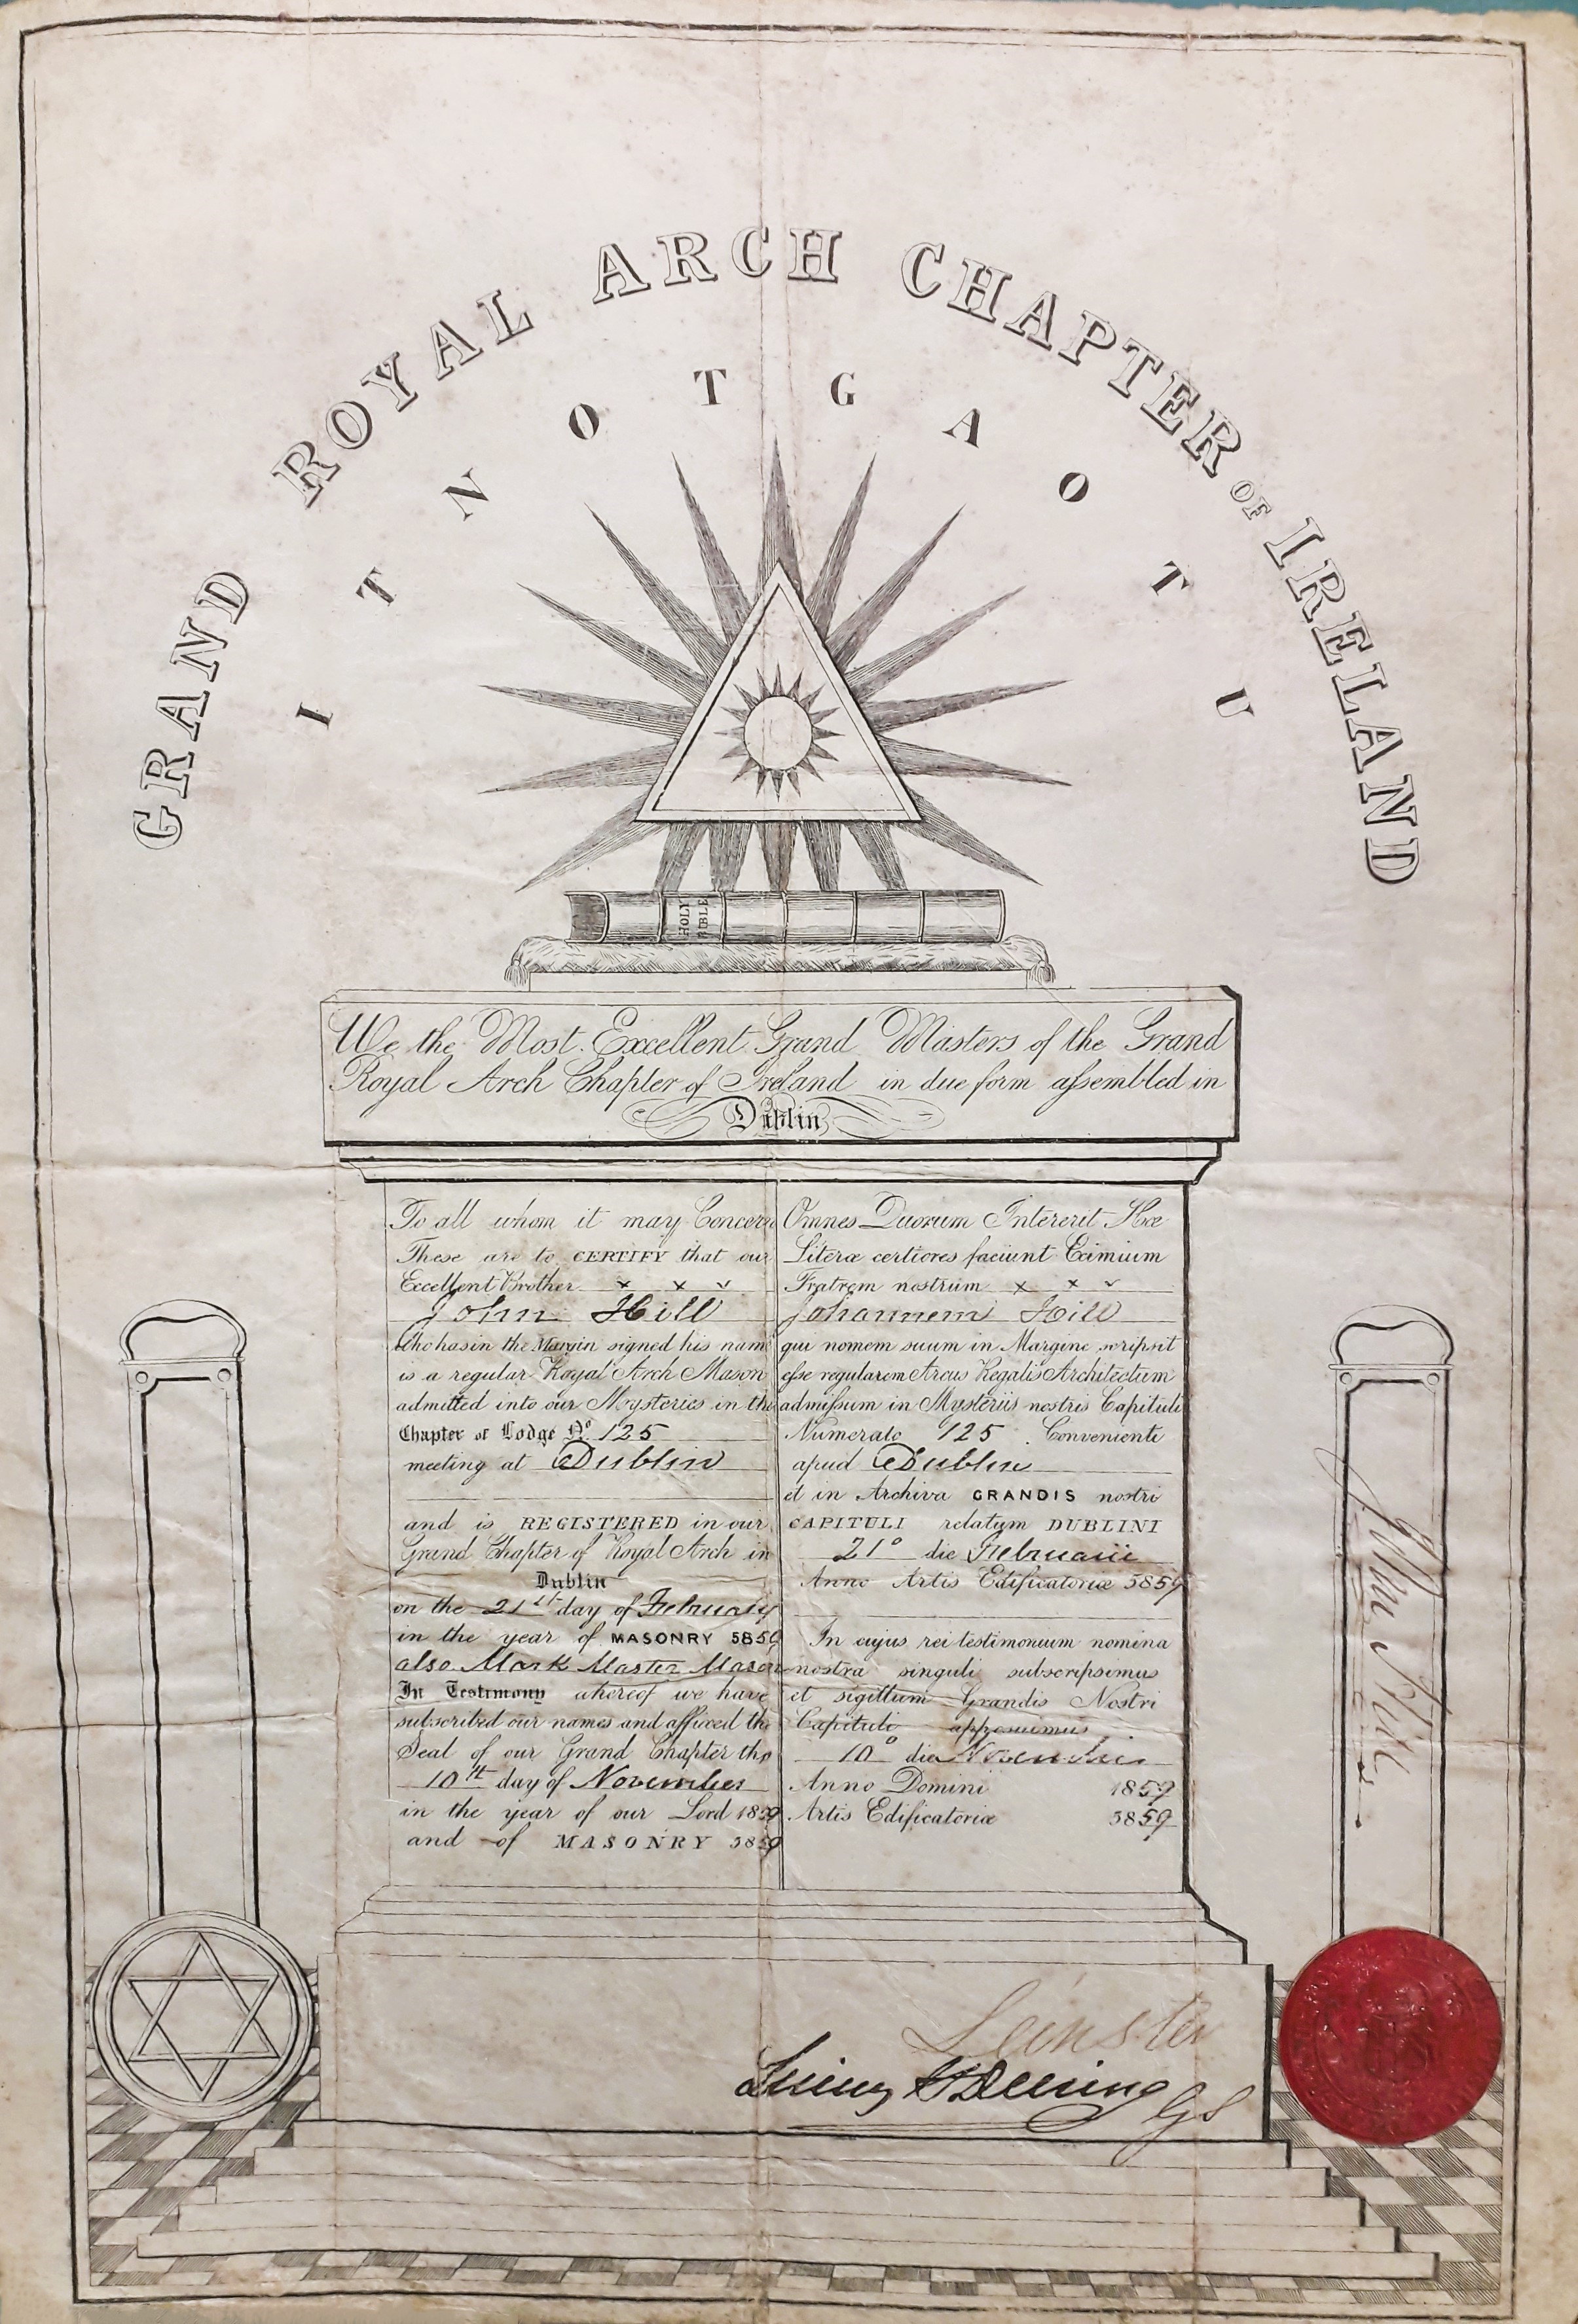 GRAND ROYAL ARCH CHAPTER OF IRELAND
I T N O T G A O T U
HOLY
BIBLE
We the Most Excellent Grand Masters of the Grand
Royal Arch Chapter of Ireland in due form assembled in
Dublin
To all whom it may Concern
These are to CERTIFY that our
Excellent Brother x x x
John Hill
Who has in the Margin signed his name
is a regular Royal Arch Mason
admitted into our Mysteries in the
Chapter of Lodge No. 125
meeting at Dublin
and is REGISTERED in our
Grand Chapter of Royal Arch in
Dublin
on the 21st day of February
in the year of MASONRY 5859
also Mark Master Mason
In Testimony whereof we have
subscribed our names and affixed the
Seal of our Grand Chapter this
10th day of November
in the year of our Lord 1859
and of MASONRY 5859
Omnes Quorum Intererit Hæ
Literæ certiores faciunt Eximium
Fratrem nostrum x x x
Johannem Hill
qui nomem suum in Margine scripsit
esse regularem Arcus Regalis Architectum
admissum in Mysteriis nostris Capituli
Numerato 125 Convenienti
apud Dublin
et in Archiva GRANDIS nostri
CAPITULI relatum DUBLINI
21o die Februarii
Anno Artis Edificatoriæ 5859
In cujus rei testimonium nomina
nostra singuli subscripsimus
et sigillum Grandis Nostri
Capituli apposuimus
10o die
Anno Domini 1859
Artis Edificatoriæ 5859
John Hill
Leinster
Deering GS